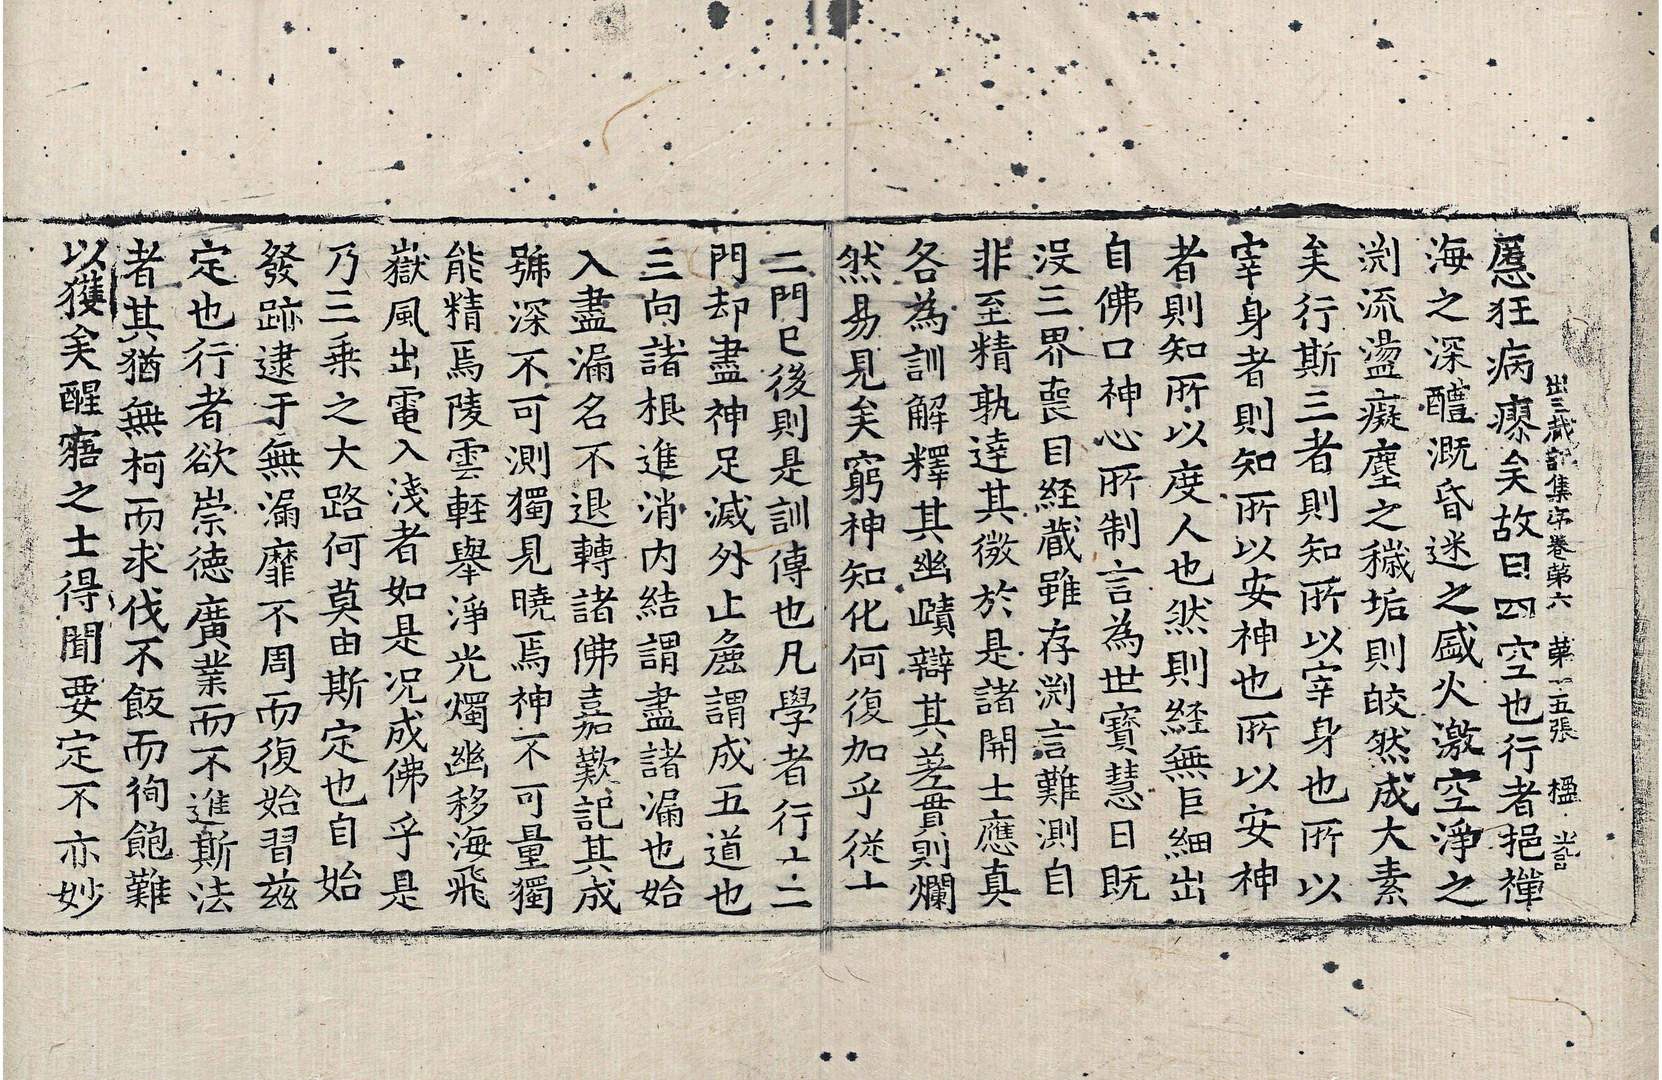 出三蔵記集序卷第六 第十五張 楹 光言
慝狂病瘳矣故曰四空也行者挹禪
海之深醴溉昏迷之盛火激空淨之
渕流盪癡塵之穢垢則皎然成大素
矣行斯三者則知所以宰身也所以
宰身者則知所以安神也所以安神
者則知所以度人也然則経無巨細出
自佛口神心所制言為世寶慧日既
没三界喪目経蔵雖存渕言難測自
非至精孰達其微於是諸開士應真
各為訓解釋其幽賾辯其差貫則爛
然易見矣窮神知化何復加乎從十
二門已後則是訓傳也凡學者行十二
門却盡神足滅外止麁謂成五道也
三向諸根進消内結謂盡諸漏也始
入盡漏名不退轉諸佛嘉歎記其成
號深不可測獨見曉焉神不可量獨
能精焉陵雲輕舉淨光燭幽移海飛
嶽風出電入淺者如是況成佛乎是
乃三乗之大路何莫由斯定也自始
發跡逮于無漏靡不周而復始習茲
定也行者欲崇德廣業而不進斯法
者其猶無柯而求伐不飯而徇飽難
以獲矣醒寤之士得聞要定不亦妙